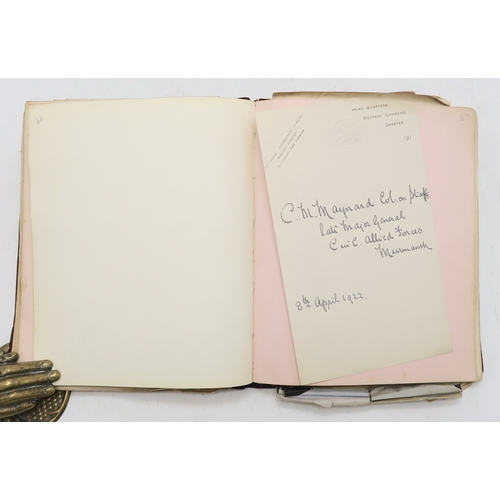 HEAD QUARTERS
WESTERN COMMAND
CHESTER.
191
C. M. Maynard Col: on Staff
late Major General
C in C. Allied Forces
Murmansk
8th April 1922.